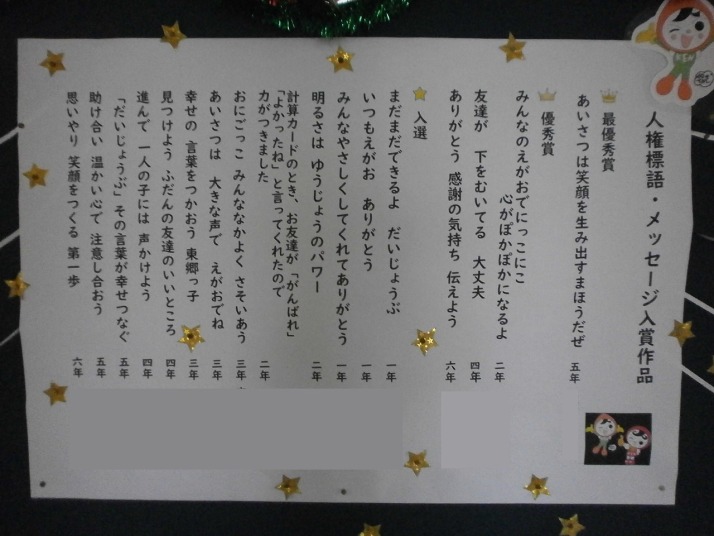 人権標語・メッセージ入賞作品
最優秀賞
あいさつは笑顔を生み出すまほうだぜ 五年
優秀賞
みんなのえがおでにっこにこ
心がぽかぽかになるよ 二年
友達が 下をむいてる 大丈夫 四年
ありがとう 感謝の気持ち 伝えよう 六年
入選
まだまだできるよ だいじょうぶ 一年
いつもえがお ありがとう 一年
みんなやさしくしてくれてありがとう 一年
明るさは ゆうじょうのパワー 二年
計算カードのとき、お友達が「がんばれ」
「よかったね」と言ってくれたので
力がつきました 二年
おにごっこ みんななかよく さそいあう 三年
あいさつは 大きな声で えがおでね 三年
幸せの 言葉をつかおう 東郷っ子 三年
見つけよう ふだんの友達のいいところ 四年
進んで 一人の子には 声かけよう 四年
「だいじょうぶ」その言葉が幸せつなぐ 五年
助け合い 温かい心で 注意し合おう 五年
思いやり 笑顔をつくる 第一歩 六年